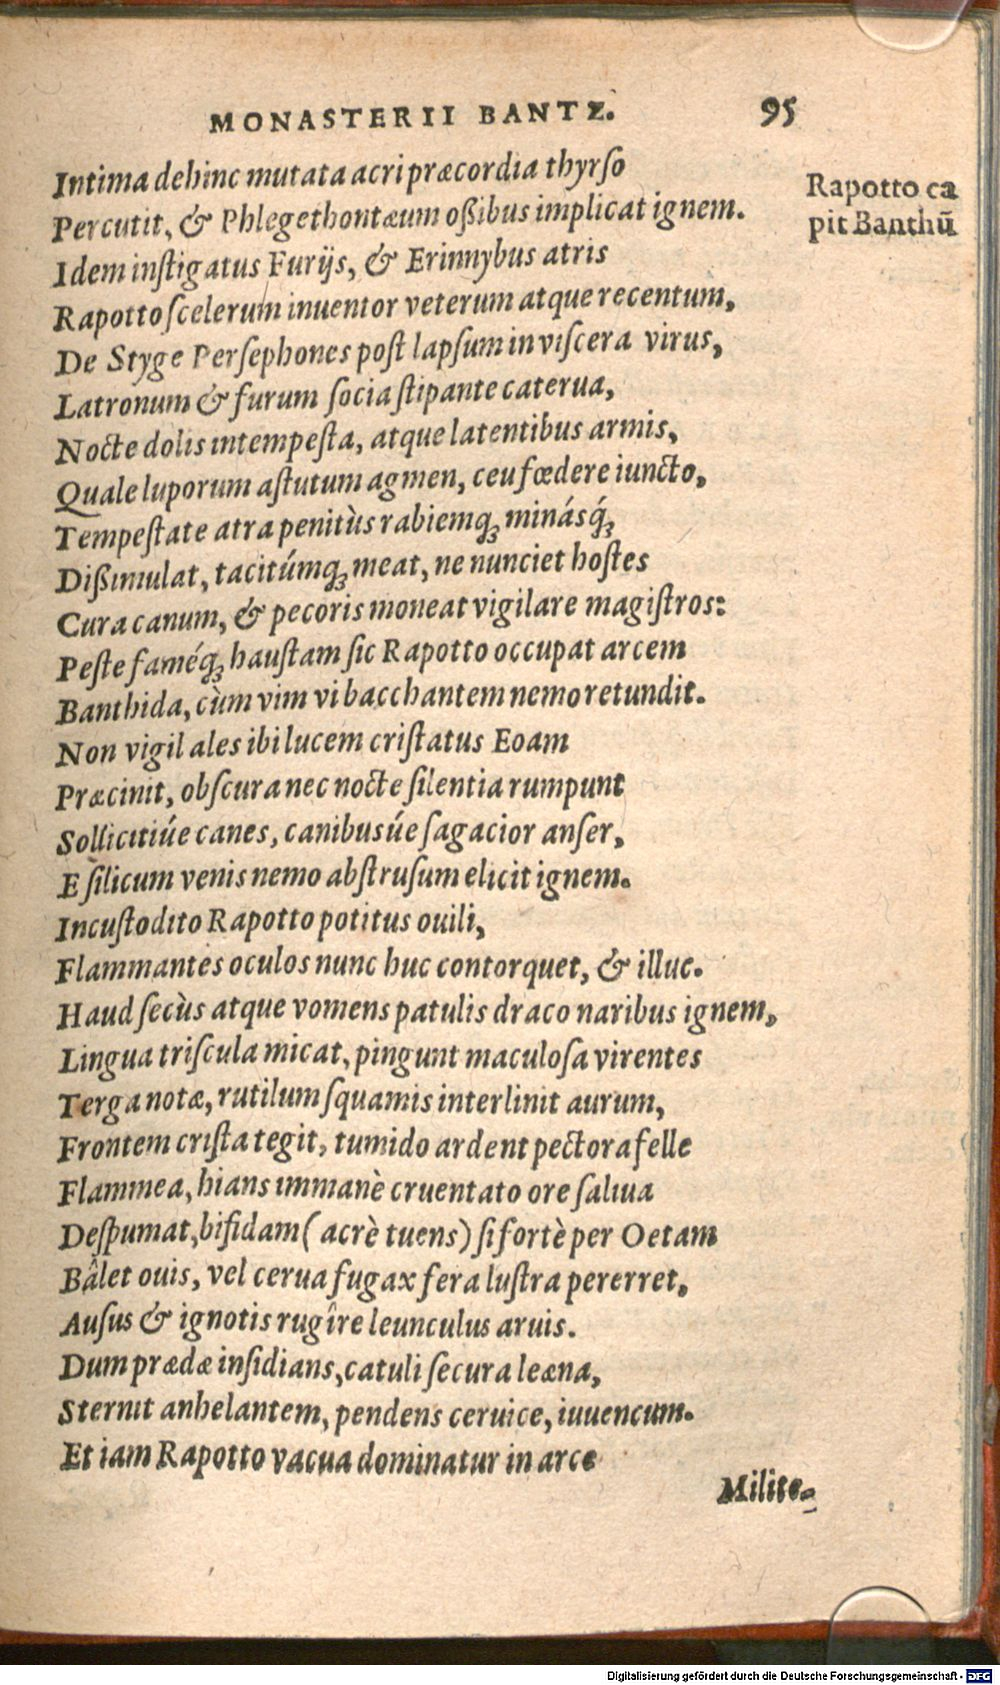 MONASTERII BANTZ. 95
Intima dehinc mutata acri præcordia thyrſo
Rapotto ca
Percutit, & Phlegethontæum oßibus implicat ignem.
pit Banthũ
Idem inſtigatus Furijs, & Erinnybus atris
Rapotto ſcelerum inuentor veterum atque recentum,
De Styge Perſephones poſt lapſum in viſcera virus,
Latronum & furum ſocia ſtipante caterua,
Nocte dolis intempeſta, atque latentibus armis,
Quale luporum aſtutum agmen, ceu fœdere iuncto,
Tempeſtate atra penitùs rabiemq́; minásq́;
Dißimulat, tacitúmq; meat, ne nunciet hoſtes
Cura canum, & pecoris moneat vigilare magiſtros:
Peſte faméq; hauſtam ſic Rapotto occupat arcem
Banthida, cùm vim vi bacchantem nemo retundit.
Non vigil ales ibi lucem criſtatus Eoam
Præcinit, obſcura nec nocte ſilentia rumpunt
Sollicitiúe canes, canibusúe ſagacior anſer,
E ſilicum venis nemo abſtruſum elicit ignem.
Incuſtodito Rapotto potitus ouili,
Flammantes oculos nunc huc contorquet, & illuc.
Haud ſecùs atque vomens patulis draco naribus ignem,
Lingua triſcula micat, pingunt maculoſa virentes
Terga notæ, rutilum ſquamis interlinit aurum,
Frontem criſta tegit, tumido ardent pectora felle
Flammea, hians immanè cruentato ore ſaliua
Deſpumat, bifidam (acrè tuens) ſi fortè per Oetam
Bâlet ouis, vel cerua fugax fera luſtra pererret,
Auſus & ignotis rugîre leunculus aruis.
Dum prædæ inſidians, catuli ſecura leæna,
Sternit anhelantem, pendens ceruice, iuuencum.
Et iam Rapotto vacua dominatur in arce
Milite-
Digitalisierung gefördert durch die Deutsche Forschungsgemeinschaft - DFG